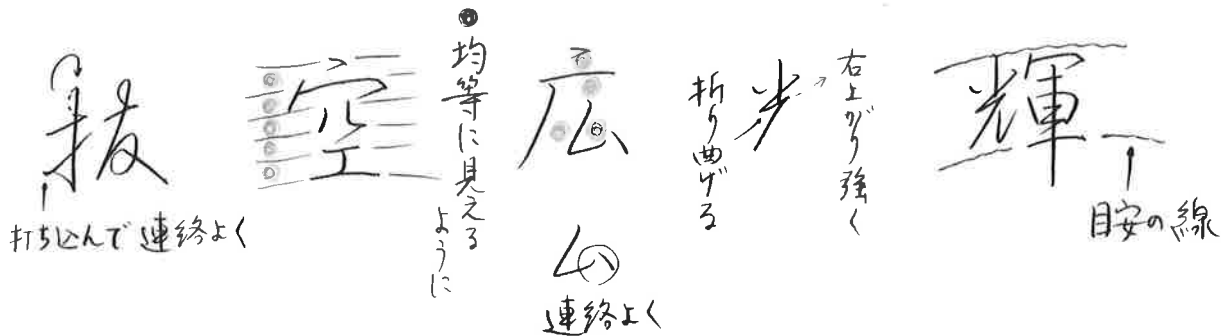 抜
打ち込んで連絡よく
空
均等に見える
ように
広
ム
連絡よく
歩
折り曲げる
右上がり強く
輝
目安の線